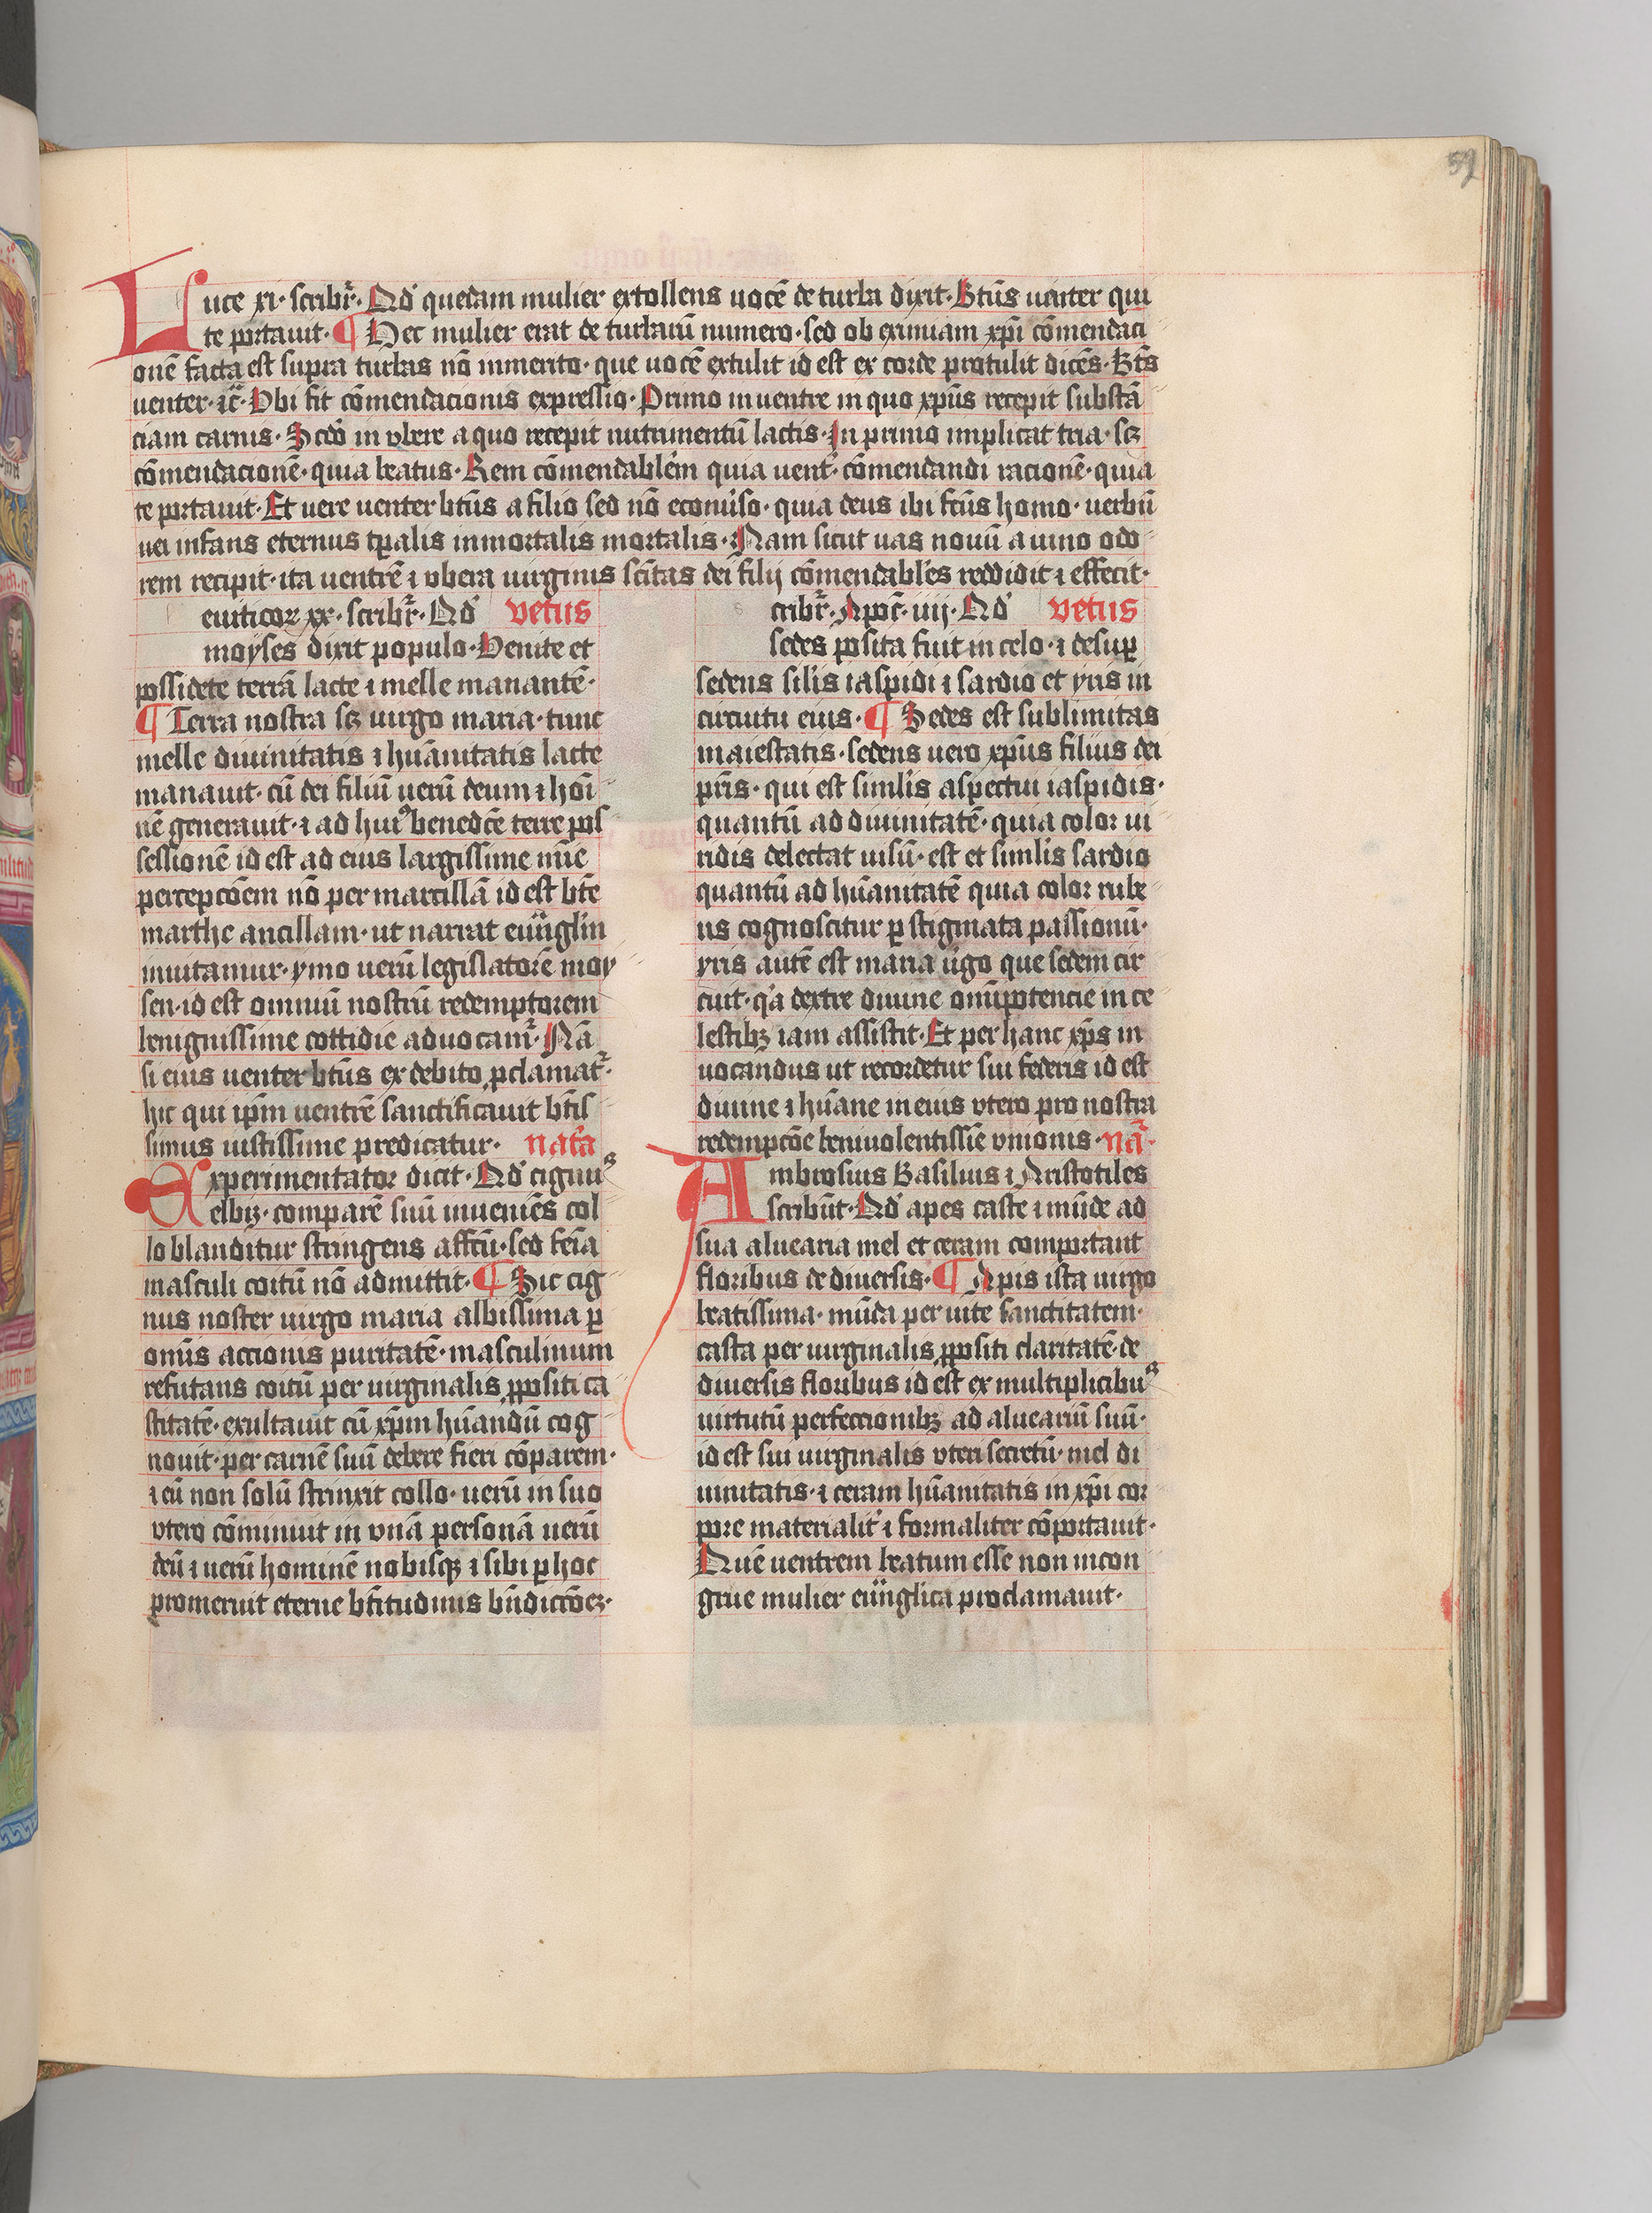 59
Luce xi· scribr̃· Qd̓ quedam mulier extollens uocē de turba dixit· Bt̄us uenter qui
te portauit· ¶ Hec mulier erat de turbarū numero· sed ob eximiam xp̄i cōmendaci
onē facta est supra turbas nō inmerito· que uocē extulit id est ex corde protulit dicēs· Bt̄s
uenter· ⁊c̄· Vbi fit cōmendacionis expressio· Primo in uentre in quo xp̄us recepit substā
ciam carnis· Scd̓o in vbere a quo recepit nutrimentū lactis· In primo implicat tria· scꝫ
cōmendacionē· quia beatus· Rem cōmendablem quia uent̓· cōmendandi racionē· quia
te portauit· Et uere uenter bt̄us a filio sed nō econu̓so· quia deus ibi fc̄us homo· uerbū
uei infans eternus tꝑalis inmortalis mortalis· Nam sicut uas nouū a uino odo
rem recipit· ita uentrē ⁊ vbera uirginis sc̄itas dei filij cōmendabl̓es reddidit ⁊ effecit·
euiticoꝝ xx· scribr̃· Qd̓ vetus
moyses dixit populo· Venite et
possidete terrā lacte ⁊ melle manantē·
¶ Terra nostra scꝫ uirgo maria· tunc
melle diuinitatis ⁊ hūanitatis lacte
manauit· cū dei filiū uerū deum ⁊ hoī
nē generauit· ⁊ ad huiꝰ benedc̄e terre pos
sessionē id est ad eius largissime mīe
percepcōem nō per marcillā id est bt̄e
marthe ancillam· ut narrat euu̓glm
inuitamur· ymo uerū legislatorē moy
sen· id est omniū nostrū redemptorem
benignissime cottidie aduocam̃· Nā
si eius uenter bt̄us ex debito ꝓclamat̃·
hic qui ip̄m uentrē sanctificauit bt̄is
simus iustissime predicatur· nat̓a
Experimentator dicit· Qd̓ cignuꝰ
elbiꝫ· comparē suū inueniēs col
lo blanditur stringens affc̄u· sed fēia
masculi coitū nō admittit· ¶ Sic cig
nus noster uirgo maria albissima ꝑ
omīs accionis puritatē· masculinum
refutans coitū per uirginalis ꝓpositi ca
stitatē· exultauit cū xp̄m hūandū cog
nouit· per carnē suū debere fieri cōparem·
⁊ eū non solū strinxit collo· uerū in suo
vtero cōminuit in vnā personā uerū
deū ⁊ uerū hominē nobisqꝫ ⁊ sibi ꝑ hoc
promeruit eterne bt̄itudinis bn̄dictōeꝫ·
cribr̃· Apoc̄· iiij· Qd̓ vetus
sedes posita fuit in celo· ⁊ desuꝑ
sedens sil̓is iaspidi ⁊ sardio et yris in
circuitu eius· ¶ Sedes est sublimitas
maiestatis· sedens uero xp̄us filius dei
pr̄is· qui est simil̓is aspectui iaspidis·
quantū ad diuinitatē· quia color ui
ridis delectat uisū· est et simil̓is sardio
quantū ad hūanitatē quia color rube
us cognoscitur ꝑ stigmata passionū·
yris autē est maria u̓igo que sedem cir
cuit· q̓a dextre diuine om̄ipotencie in ce
lestibꝫ iam assistit· Et per hanc xp̄s in
uocandus ut recordetur sui federis id est
diuine ⁊ hūane in eius vtero pro nostra
redempcōe beniuolentissīe vnionis· nā·
Ambrosius Basilius ⁊ Aristotiles
scribūt· Qd̓ apes caste ⁊ mūde ad
sua aluearia mel et ceram comportant
floribus de diuersis· ¶ Apis ista uirgo
beatissima· mūda per uite sanctitatem·
casta per uirginalis ꝓpositi claritatē· de
diuersis floribus id est ex multiplicibuꝰ
uirtutū perfeccionibꝫ ad aluearu̅ suū·
id est sui uirginalis vteri secretū· mel di
uinitatis· ⁊ ceram hūanitatis in xp̄i cor
pore materialit̓ ⁊ formaliter cōportauit·
Quē uentrem beatum esse non incon
grue mulier euu̓glica proclamauit·